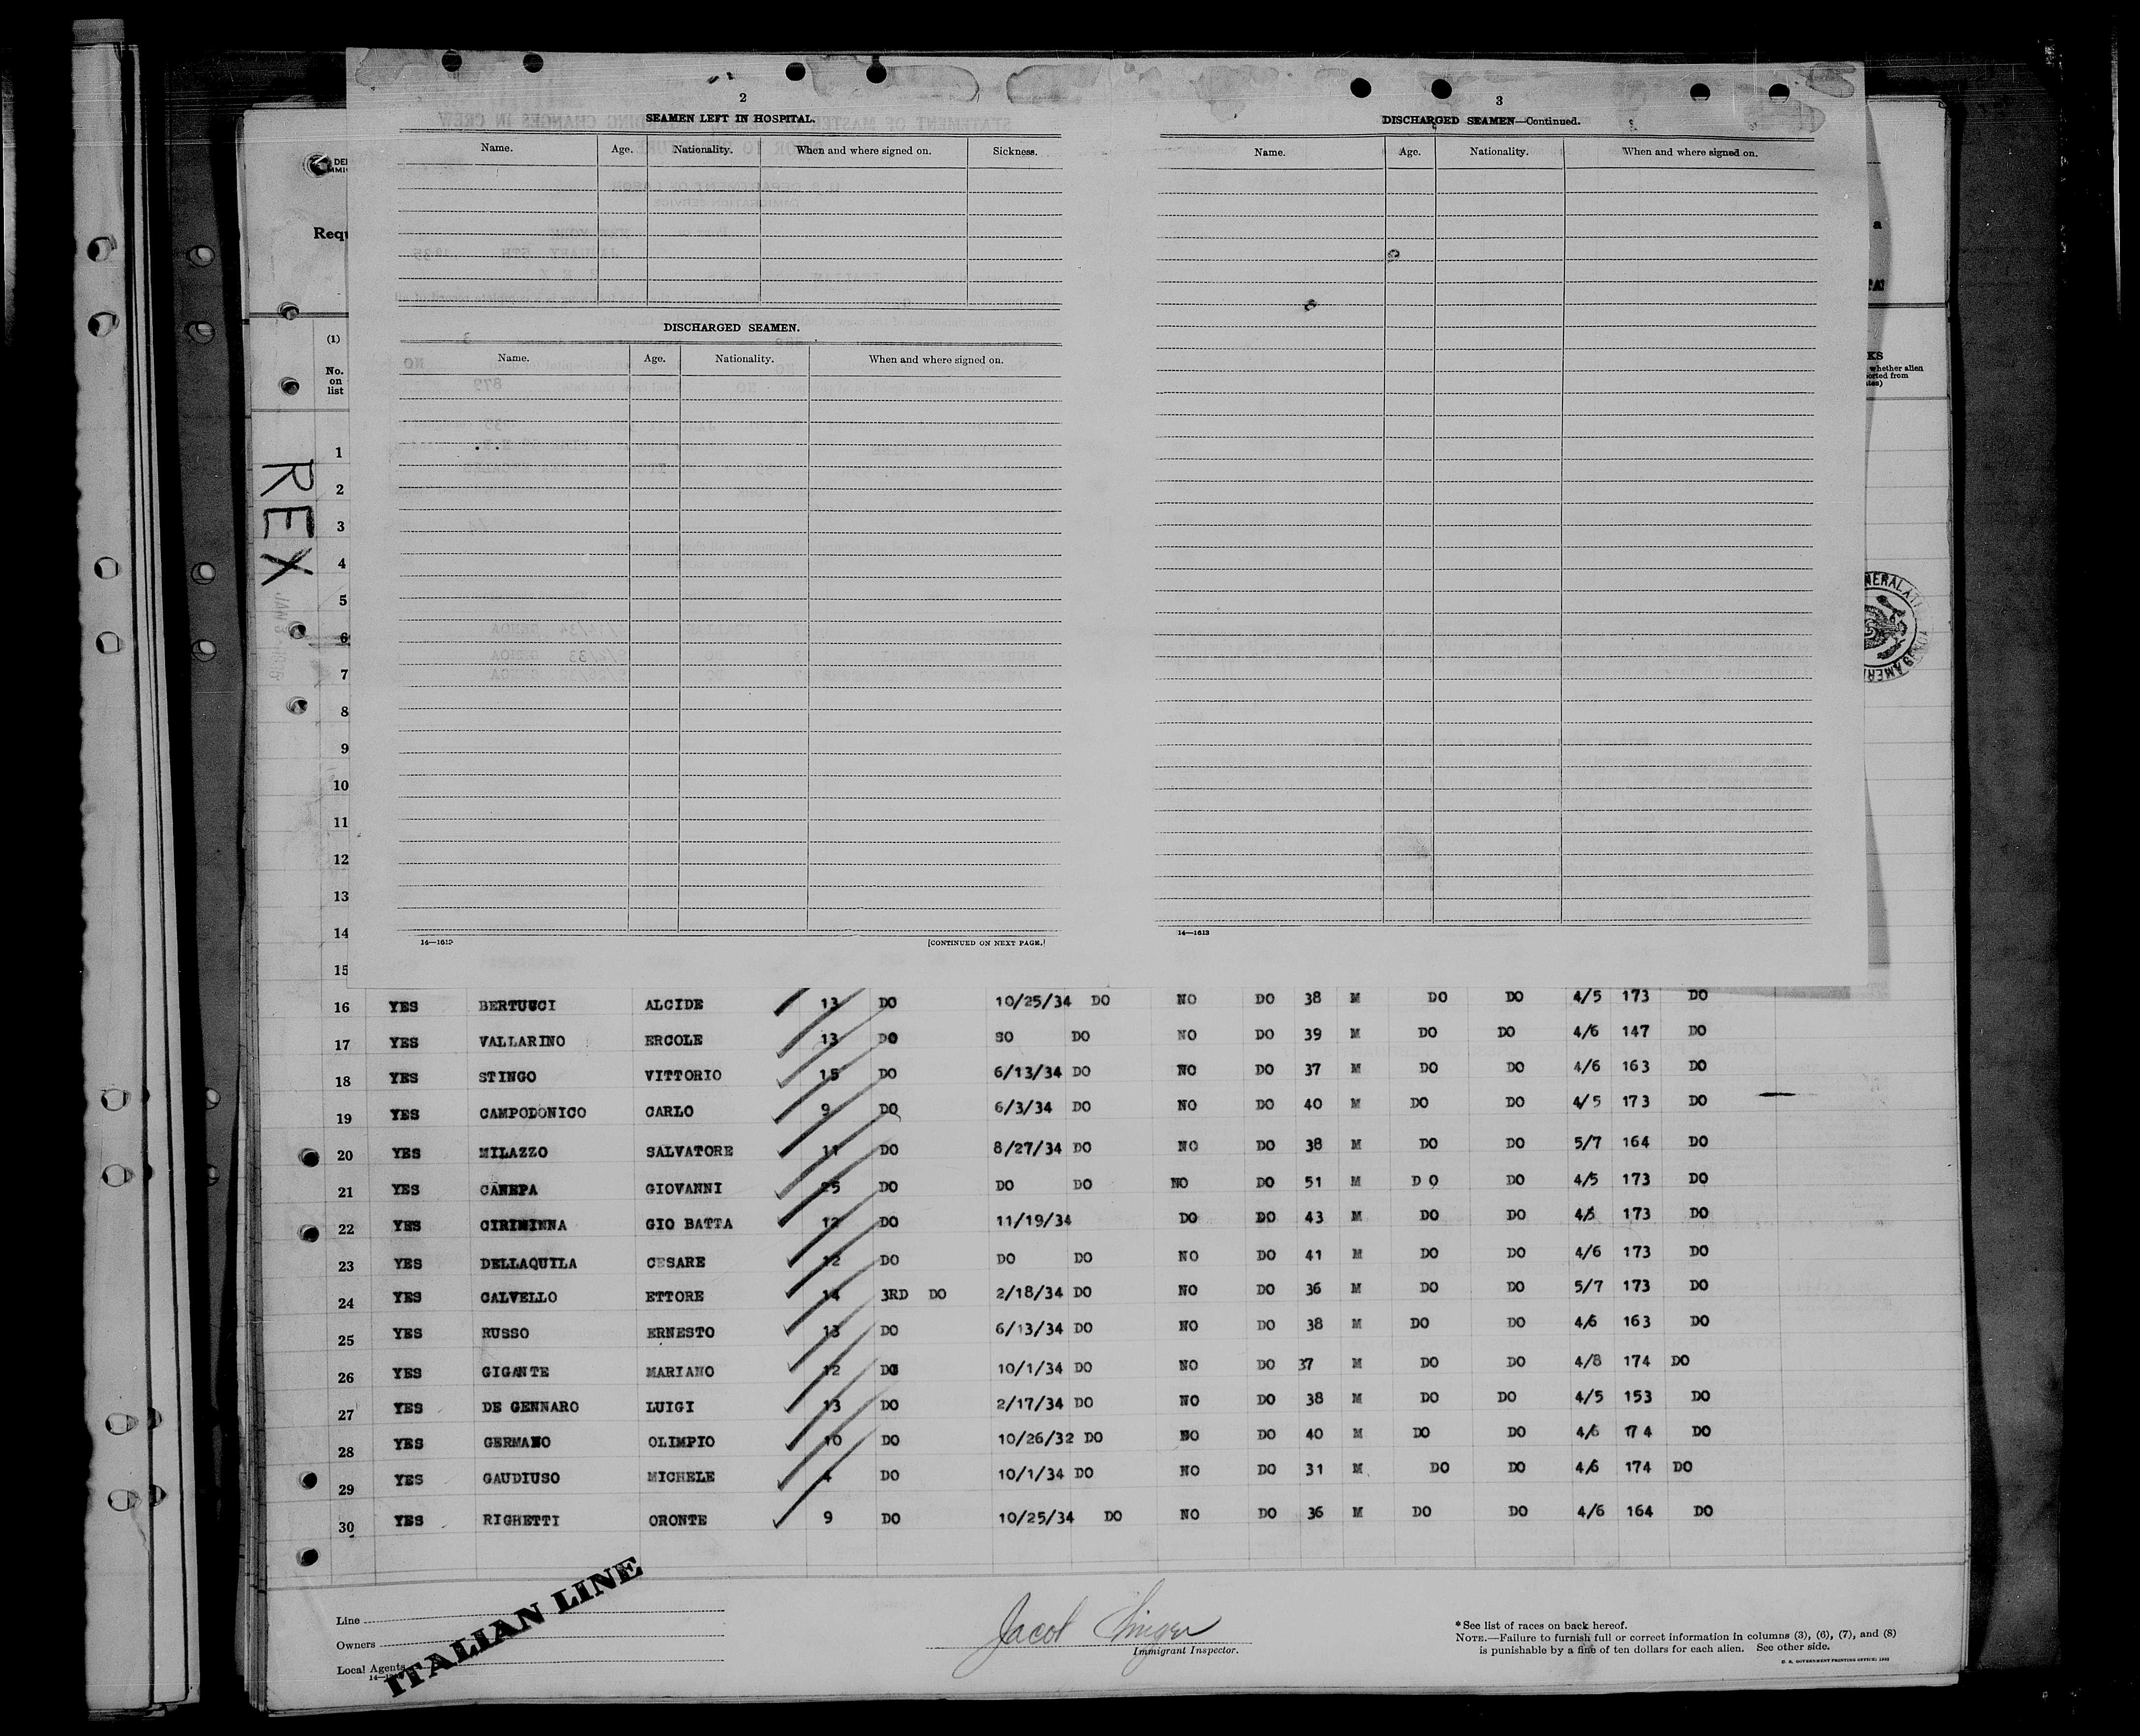 2
SEAMEN LEFT IN HOSPITAL.
Name. Age. Nationality. When and where signed on. Sickness.
DISCHARGED SEAMEN.
Name. Age. Nationality. When and where signed on.
14—1613
[CONTINUED ON NEXT PAGE.]
3
DISCHARGED SEAMEN—Continued.
Name. Age. Nationality. When and where signed on.
14—1613
Requ
(1)
No.
on
list
REX
a
KS
whether alien
ported from
1
2
3
4
5
6
7
8
9
10
11
12
13
14
15
16 YES BERTUCCI ALCIDE 13 DO 10/25/34 DO NO DO 38 M DO DO 4/5 173 DO
17 YES VALLARINO ERCOLE 13 DO SO DO NO DO 39 M DO DO 4/6 147 DO
18 YES STINGO VITTORIO 15 DO 6/13/34 DO NO DO 37 M DO DO 4/6 163 DO
19 YES CAMPODONICO CARLO 9 DO 6/3/34 DO NO DO 40 M DO DO 4/5 173 DO
20 YES MILAZZO SALVATORE 11 DO 8/27/34 DO NO DO 38 M DO DO 5/7 164 DO
21 YES CANEPA GIOVANNI 25 DO DO DO NO DO 51 M D O DO 4/5 173 DO
22 YES CIRIMINNA GIO BATTA 12 DO 11/19/34 DO DO 43 M DO DO 4/5 173 DO
23 YES DELLAQUILA CESARE 12 DO DO DO NO DO 41 M DO DO 4/6 173 DO
24 YES CALVELLO ETTORE 14 3RD DO 2/18/34 DO NO DO 36 M DO DO 5/7 173 DO
25 YES RUSSO ERNESTO 13 DO 6/13/34 DO NO DO 38 M DO DO 4/6 163 DO
26 YES GIGANTE MARIANO 12 DO 10/1/34 DO NO DO 37 M DO DO 4/8 174 DO
27 YES DE GENNARO LUIGI 13 DO 2/17/34 DO NO DO 38 M DO DO 4/5 153 DO
28 YES GERMANO OLIMPIO 10 DO 10/26/32 DO NO DO 40 M DO DO 4/6 17 4 DO
29 YES GAUDIUSO MICHELE 4 DO 10/1/34 DO NO DO 31 M DO DO 4/6 174 DO
30 YES RIGHETTI ORONTE 9 DO 10/25/34 DO NO DO 36 M DO DO 4/6 164 DO
Line
Owners
Local Agents
ITALIAN LINE
Jacob Singer
Immigrant Inspector.
* See list of races on back hereof.
NOTE.—Failure to furnish full or correct information in columns (3), (6), (7), and (8)
is punishable by a fine of ten dollars for each alien. See other side.
U. S. GOVERNMENT PRINTING OFFICE: 1932